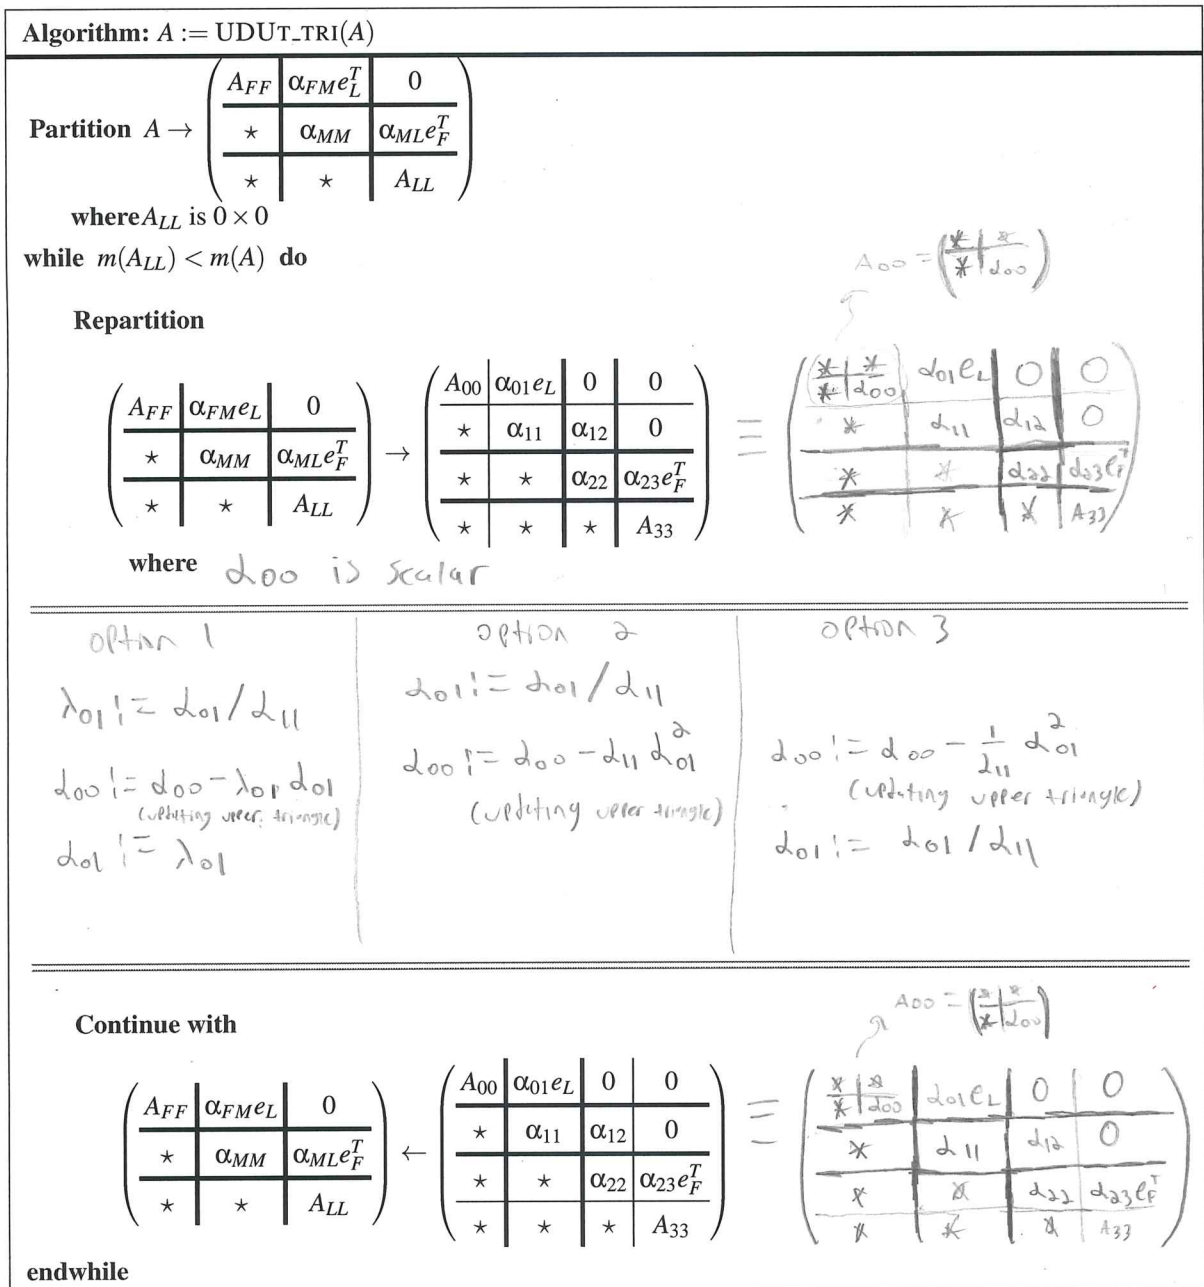 Algorithm: A := UDUT_TRI(A)
Partition A → ( A_FF | α_FM e_L^T | 0
⋆ | α_MM | α_ML e_F^T
⋆ | ⋆ | A_LL )
whereA_LL is 0 × 0
while m(A_LL) < m(A) do
A00 = ( * | *
* | α00 )
Repartition
( A_FF | α_FM e_L | 0
⋆ | α_MM | α_ML e_F^T
⋆ | ⋆ | A_LL )
→
( A00 | α01 e_L | 0 | 0
⋆ | α11 | α12 | 0
⋆ | ⋆ | α22 | α23 e_F^T
⋆ | ⋆ | ⋆ | A33 )
≡
( * | *
* | α00 | α01 e_L | 0 | 0
* | α11 | α12 | 0
* | * | α22 | α23 e_F^T
* | * | * | A33 )
where α00 is scalar
option 1
λ01 := α01 / α11
α00 := α00 - λ01 α01
(updating upper triangle)
α01 := λ01
option 2
α01 := α01 / α11
α00 := α00 - α11 α01^2
(updating upper triangle)
option 3
α00 := α00 - 1/α11 α01^2
(updating upper triangle)
α01 := α01 / α11
A00 = ( * | *
* | α00 )
Continue with
( A_FF | α_FM e_L | 0
⋆ | α_MM | α_ML e_F^T
⋆ | ⋆ | A_LL )
←
( A00 | α01 e_L | 0 | 0
⋆ | α11 | α12 | 0
⋆ | ⋆ | α22 | α23 e_F^T
⋆ | ⋆ | ⋆ | A33 )
≡
( * | *
* | α00 | α01 e_L | 0 | 0
* | α11 | α12 | 0
* | * | α22 | α23 e_F^T
* | * | * | A33 )
endwhile